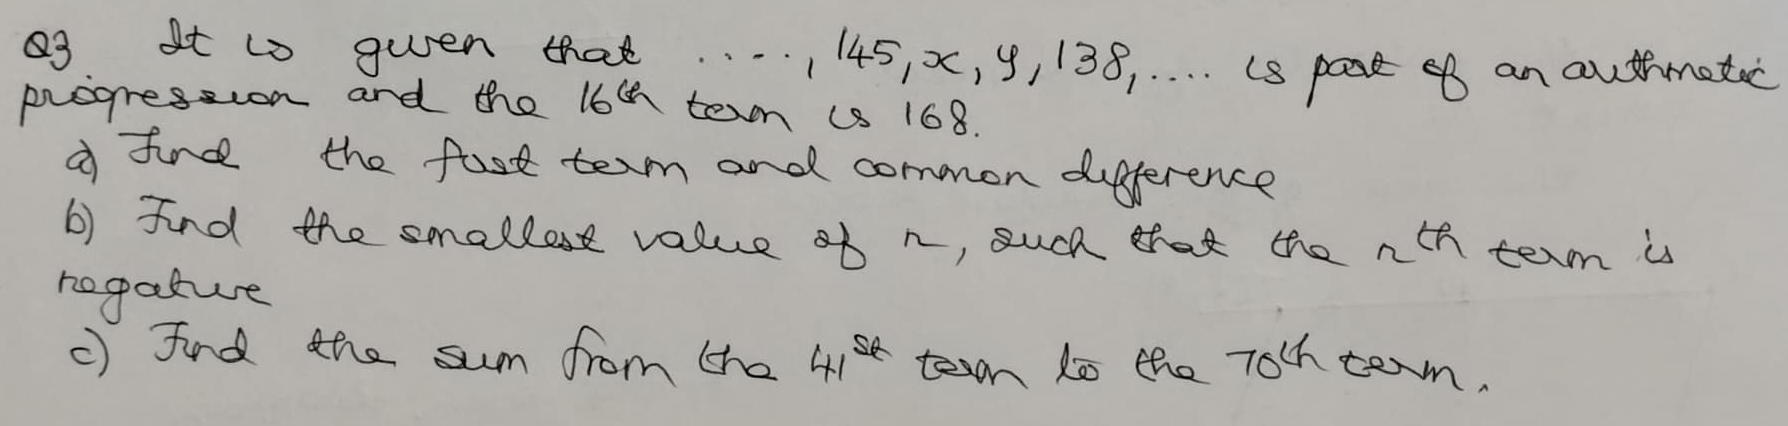 Q3 It is given that ...., 145, x, y, 138, .... is part of an arithmetic
progression and the 16th term is 168.
a) Find the first term and common difference
b) Find the smallest value of n, such that the nth term is
negative
c) Find the sum from the 41st term to the 70th term.